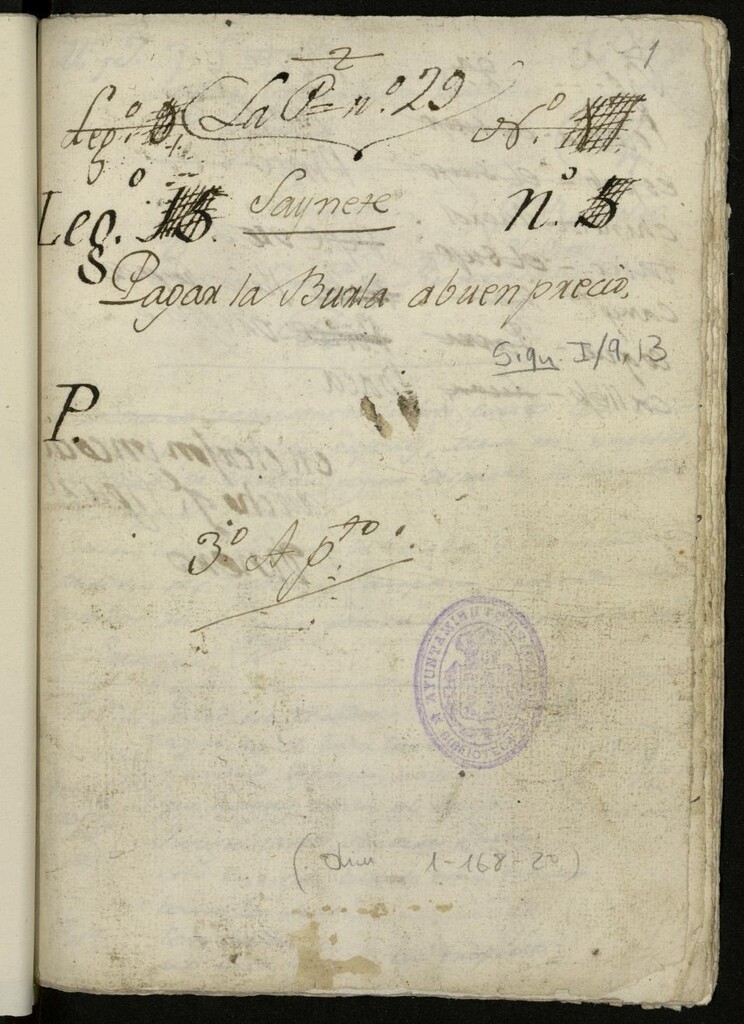 2
1
Leg.º La P.ᵉ n.º 29 N.º
Leg.º Saynete n.º 5
8
Pagar la Burla a buen precio,
Sign. I/9, 13
P.
3.º Ap.ᵗᵒ
AYUNTAMIENTO
BIBLIOTECA
1-168-20)